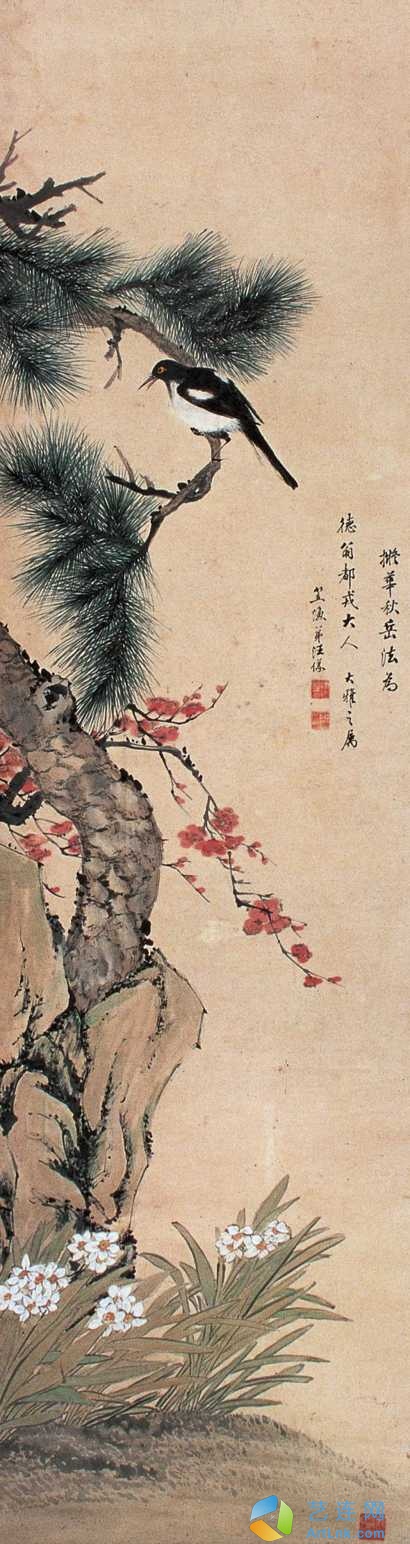 擬華秋岳法為
德翁都戎大人 大雅之属
笠漁弟汪傑
艺氏网
ArtLink.com